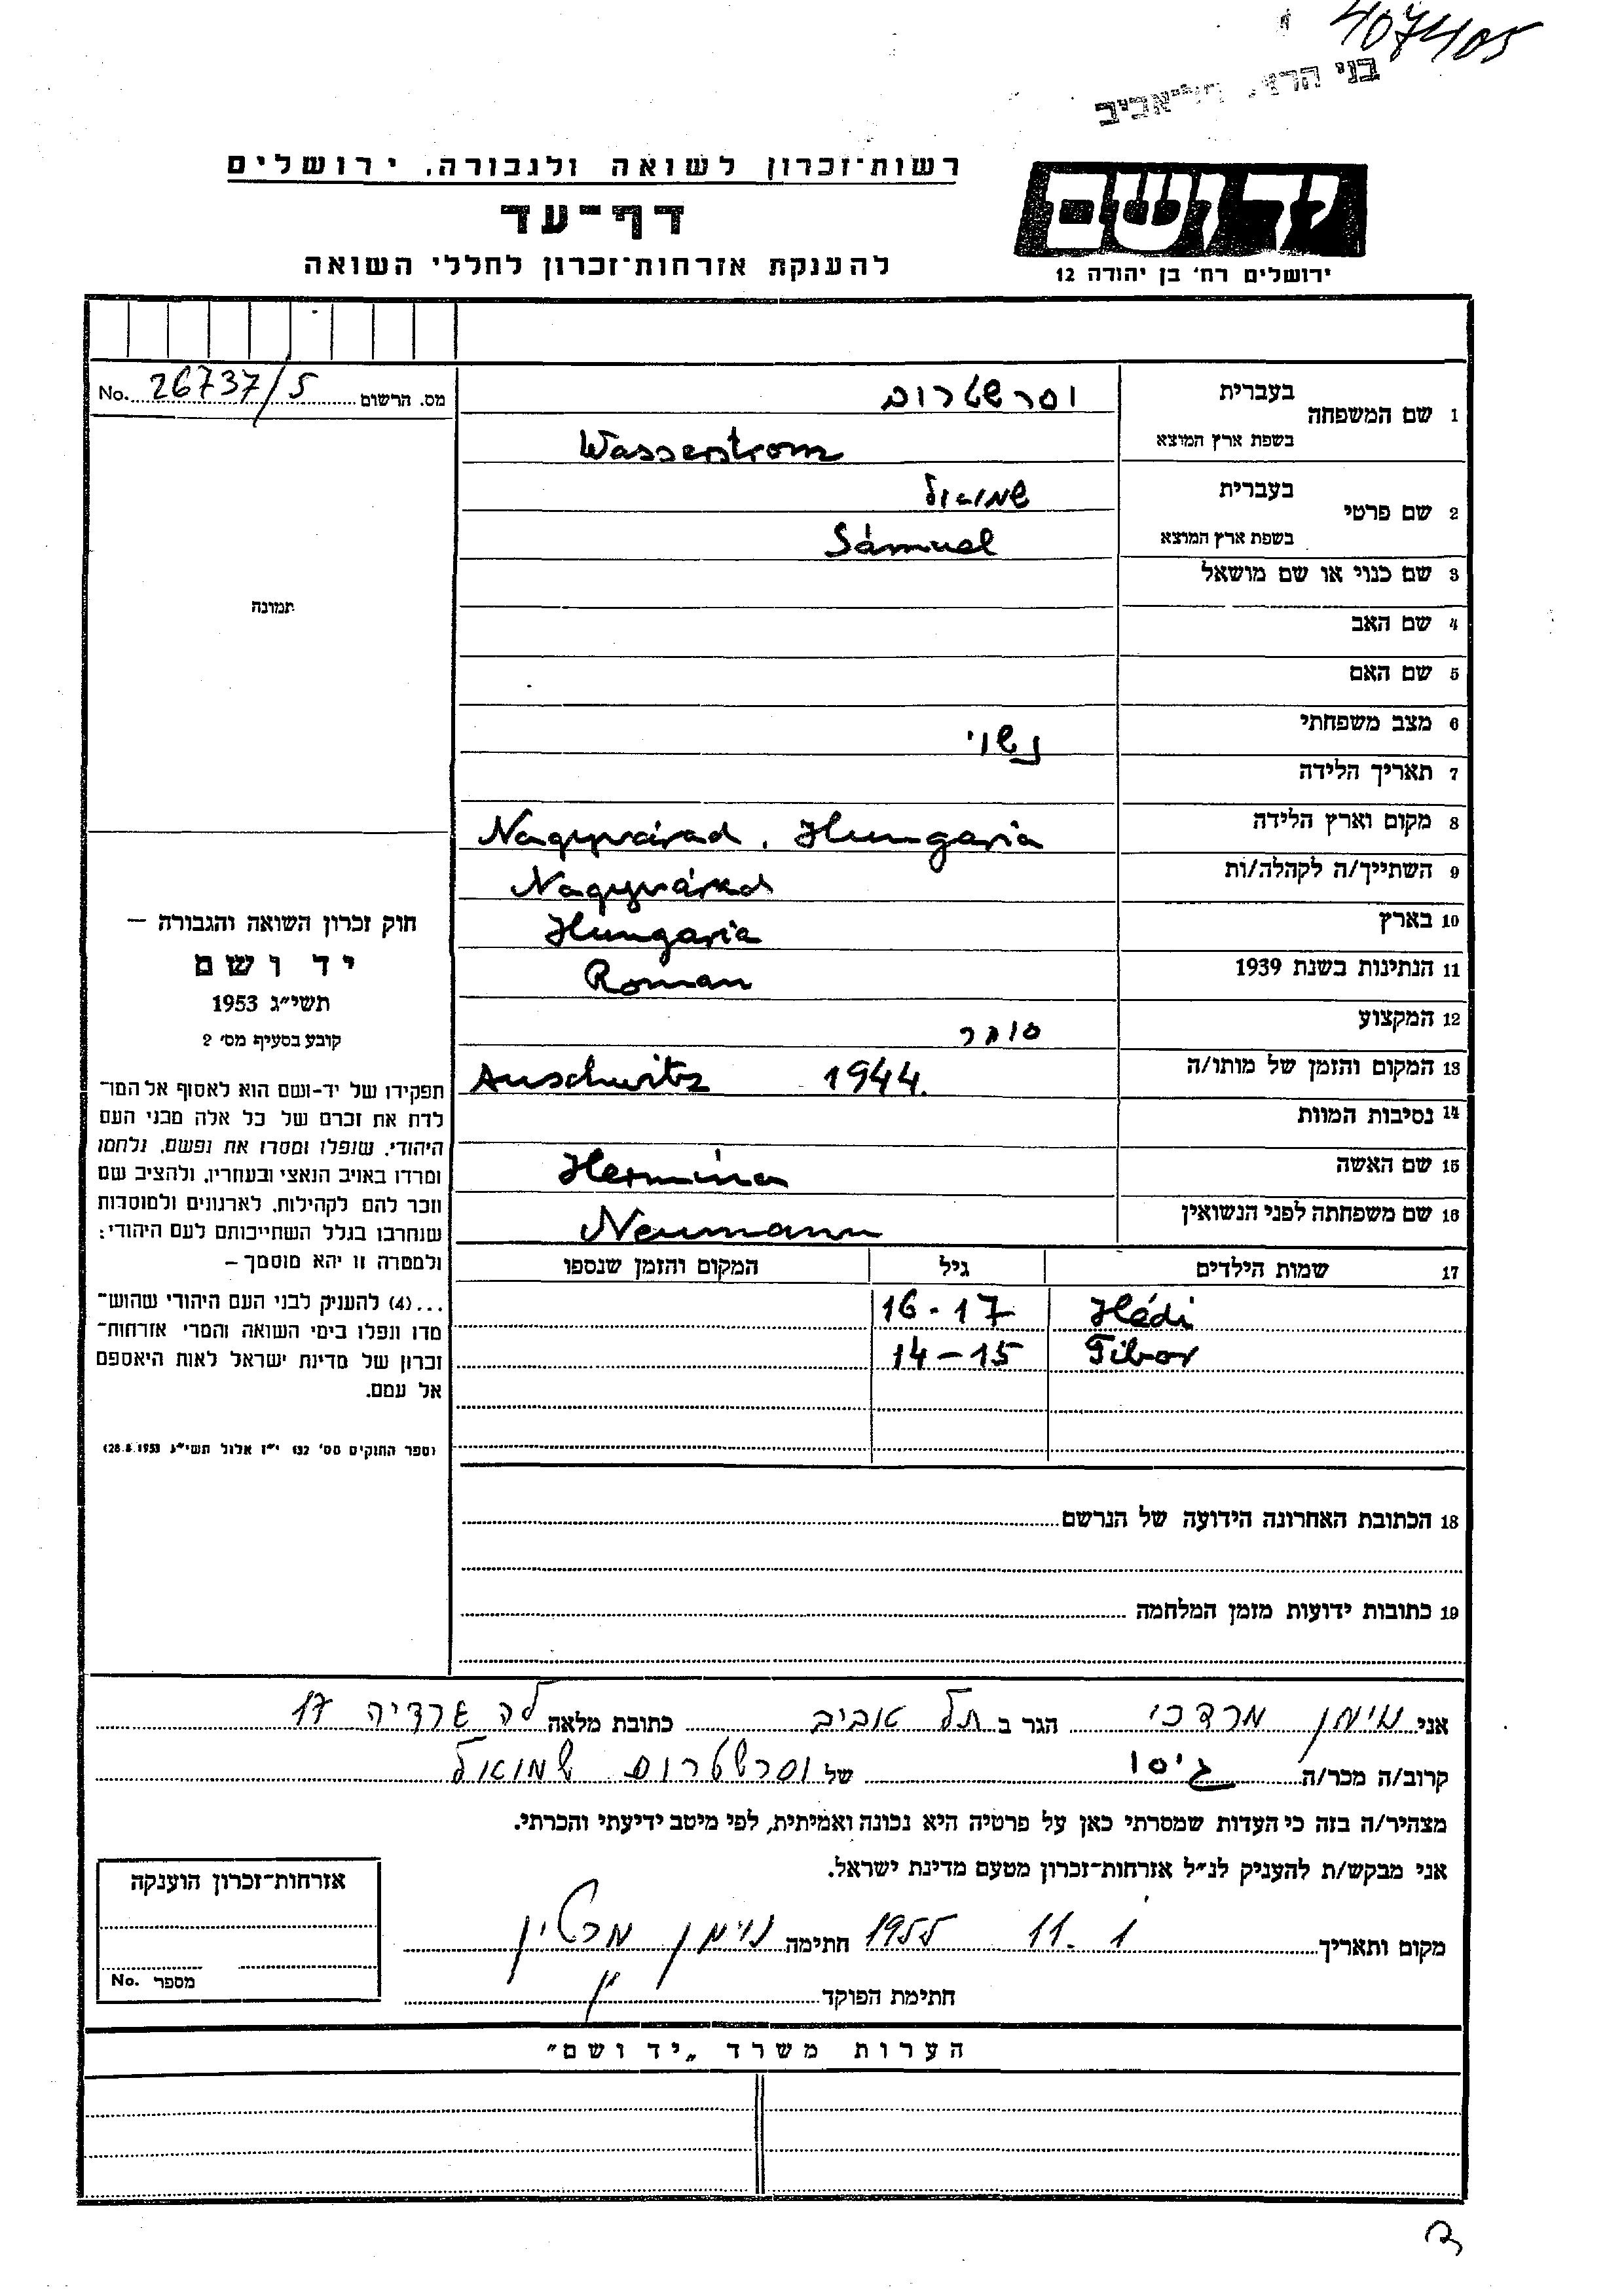 407405
בני הרצ
רשות־זכרון לשואה ולגבורה, ירושלים
דף־עד
להענקת אזרחות־זכרון לחללי השואה
יד ושם
ירושלים רח' בן יהודה 12
מס. הרשום 26737/5 No.
1 שם המשפחה
בעברית וסרשטרום
בשפת ארץ המוצא Wasserstrom
2 שם פרטי
בעברית שמואל
בשפת ארץ המוצא Sámuel
3 שם כנוי או שם מושאל
4 שם האב
5 שם האם
6 מצב משפחתי נשוי
7 תאריך הלידה
8 מקום וארץ הלידה Nagyvárad, Hungaria
9 השתייך/ה לקהלה/ות Nagyvárad
10 בארץ Hungaria
11 הנתינות בשנת 1939 Roman
12 המקצוע סוחר
13 המקום והזמן של מותו/ה Auschwitz 1944.
14 נסיבות המוות
15 שם האשה Hermina
16 שם משפחתה לפני הנשואין Neumann
17 שמות הילדים גיל המקום והזמן שנספו
Hédi 16-17
Tibor 14-15
18 הכתובת האחרונה הידועה של הנרשם
19 כתובות ידועות מזמן המלחמה
תמונה
חוק זכרון השואה והגבורה —
יד ושם
תשי״ג 1953
קובע בסעיף מס' 2
תפקידו של יד-ושם הוא לאסוף אל המו־
לדת את זכרם של כל אלה מבני העם
היהודי, שנפלו ומסרו את נפשם, נלחמו
ומרדו באויב הנאצי ובעוזריו, ולהציב שם
וזכר להם לקהילות, לארגונים ולמוסדות
שנחרבו בגלל השתייכותם לעם היהודי;
ולמטרה זו יהא מוסמך —
...(4) להעניק לבני העם היהודי שהוש־
מדו ונפלו בימי השואה והמרי אזרחות־
זכרון של מדינת ישראל לאות היאספם
אל עמם.
(ספר החוקים מס' 132 י״ז אלול תשי״ג 28.8.1953)
אני נוימן מרדכי הגר ב תל אביב כתובת מלאה לה גרדיה 17
קרוב/ה מכר/ה גיסו של וסרשטרום שמואל
מצהיר/ה בזה כי העדות שמסרתי כאן על פרטיה היא נכונה ואמיתית, לפי מיטב ידיעתי והכרתי.
אני מבקש/ת להעניק לנ״ל אזרחות־זכרון מטעם מדינת ישראל.
מקום ותאריך 1. 11 1955 חתימה נוימן מרטין
חתימת הפוקד
אזרחות־זכרון הוענקה
מספר No.
הערות משרד „יד ושם״